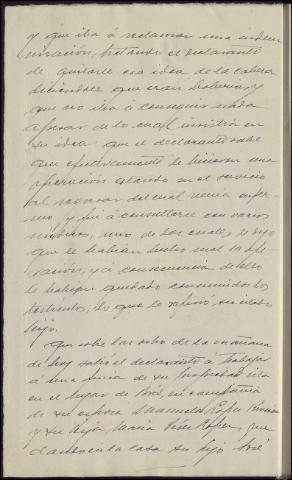 y que iba á reclamar una indem
nización, tratando el declarante
de quitarle esa idea de la cabeza
diciéndole que eran boberias, y
que no iba á conseguir nada
apesar de lo cual insistía en
su idea: que el declarante sabe
que efectivamente le hicieron una
operación estando en el servicio
al regresar del cual venia enfer-
mo, y fué á consultarle con varios
médicos, uno de los cuales le dijo
que le habían hecho mal la ope-
ración, y á consecuencia de ello
le habían quedado consumidos los
testiculos, lo que le refirió su citado
hijo.
Que sobre las ocho de la mañana
de hoy salió el declarante á trabajar
á una finca de su propiedad sita
en el lugar de en compañia
de su esposa Manuela López
y su hija Maria López, que
dando en la casa su hijo José